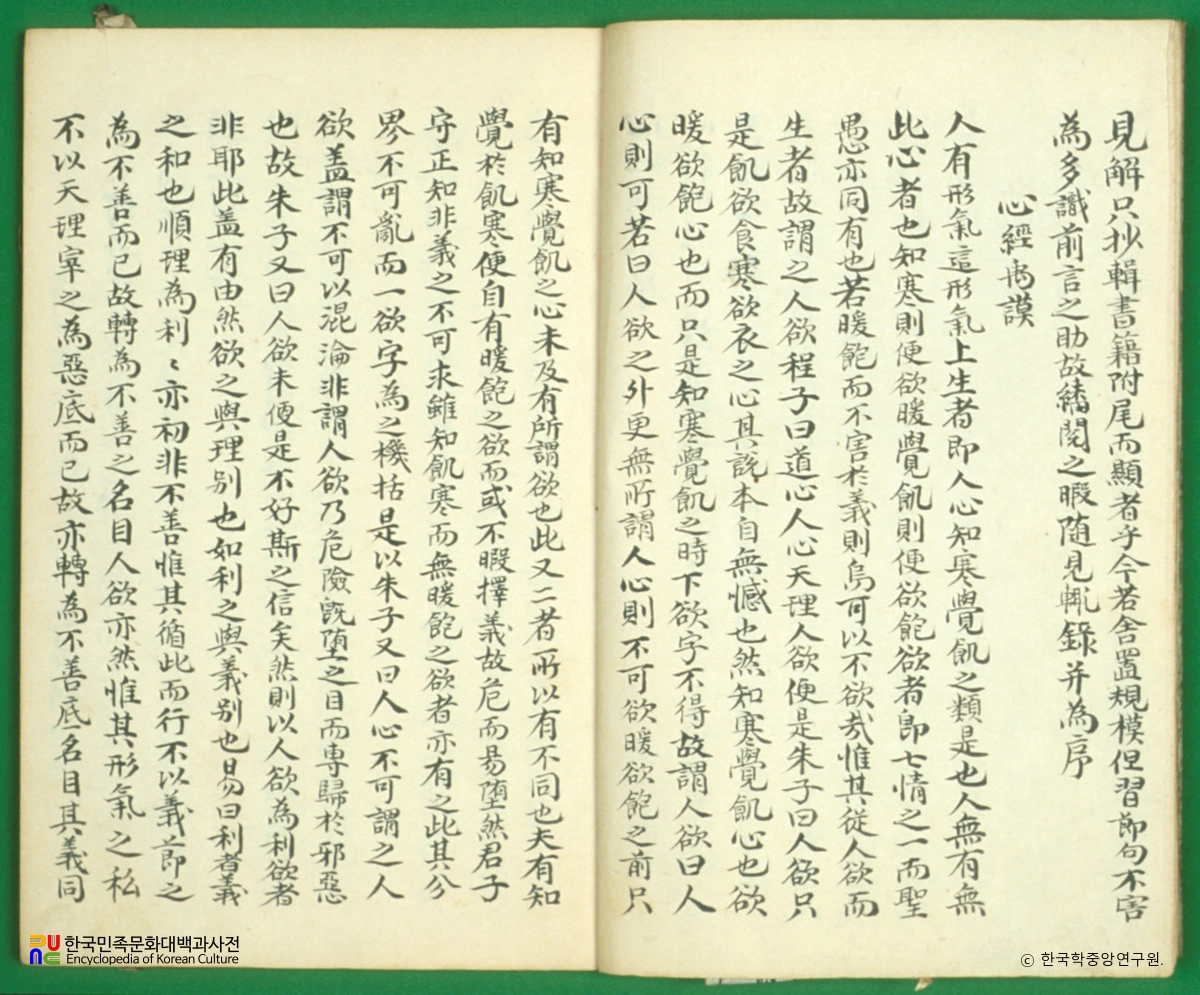 見解只抄輯書籍附尾而顯者乎今若舍置規模但習節句不害
為多識前言之助故繙閱之暇随見輒錄并為序
心經禹謨
人有形氣這形氣上生者即人心知寒覺飢之類是也人無有無
此心者也知寒則便欲暖覺飢則便欲飽欲者即七情之一而聖
愚亦同有也若暖飽而不害於義則烏可以不欲㢤惟其從人欲而
生者故謂之人欲程子曰道心人心天理人欲便是朱子曰人欲只
是飢欲食寒欲衣之心其說本自無憾也然知寒覺飢心也欲
暖欲飽心也而只是知寒覺飢之時下欲字不得故謂人欲曰人
心則可若曰人欲之外更無所謂人心則不可欲暖欲飽之前只
有知寒覺飢之心未及有所謂欲也此又二者所以有不同也夫有知
覺於飢寒便自有暖飽之欲而或不暇擇義故危而易堕然君子
守正知非義之不可求雖知飢寒而無暖飽之欲者亦有之此其分
界不可亂而一欲字為之機括是以朱子又曰人心不可謂之人
欲盖謂不可以混淪非謂人欲乃危險既堕之目而專歸於邪惡
也故朱子又曰人欲未便是不好斯之信矣然則以人欲為利欲者
非耶此盖有由然欲之與理别也如利之與義别也易曰利者義
之和也順理為利〻亦初非不善惟其循此而行不以義節之
為不善而已故轉為不善之名目人欲亦然惟其形氣之私
不以天理宰之為惡底而已故亦轉為不善底名目其義同
한국민족문화대백과사전
Encyclopedia of Korean Culture
ⓒ 한국학중앙연구원.